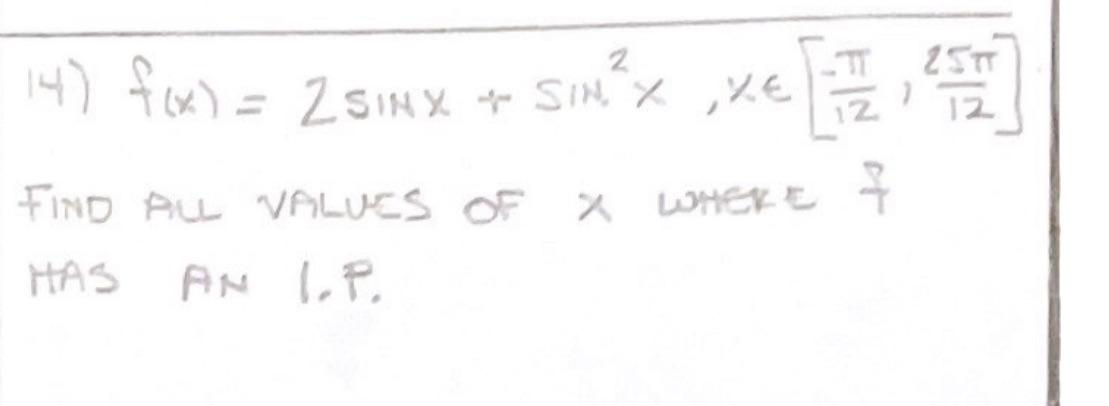 14) f(x) = 2 SINX + SIN.²X , XE [-π/12 , 25π/12]
FIND ALL VALUES OF X WHERE f
HAS AN I.P.